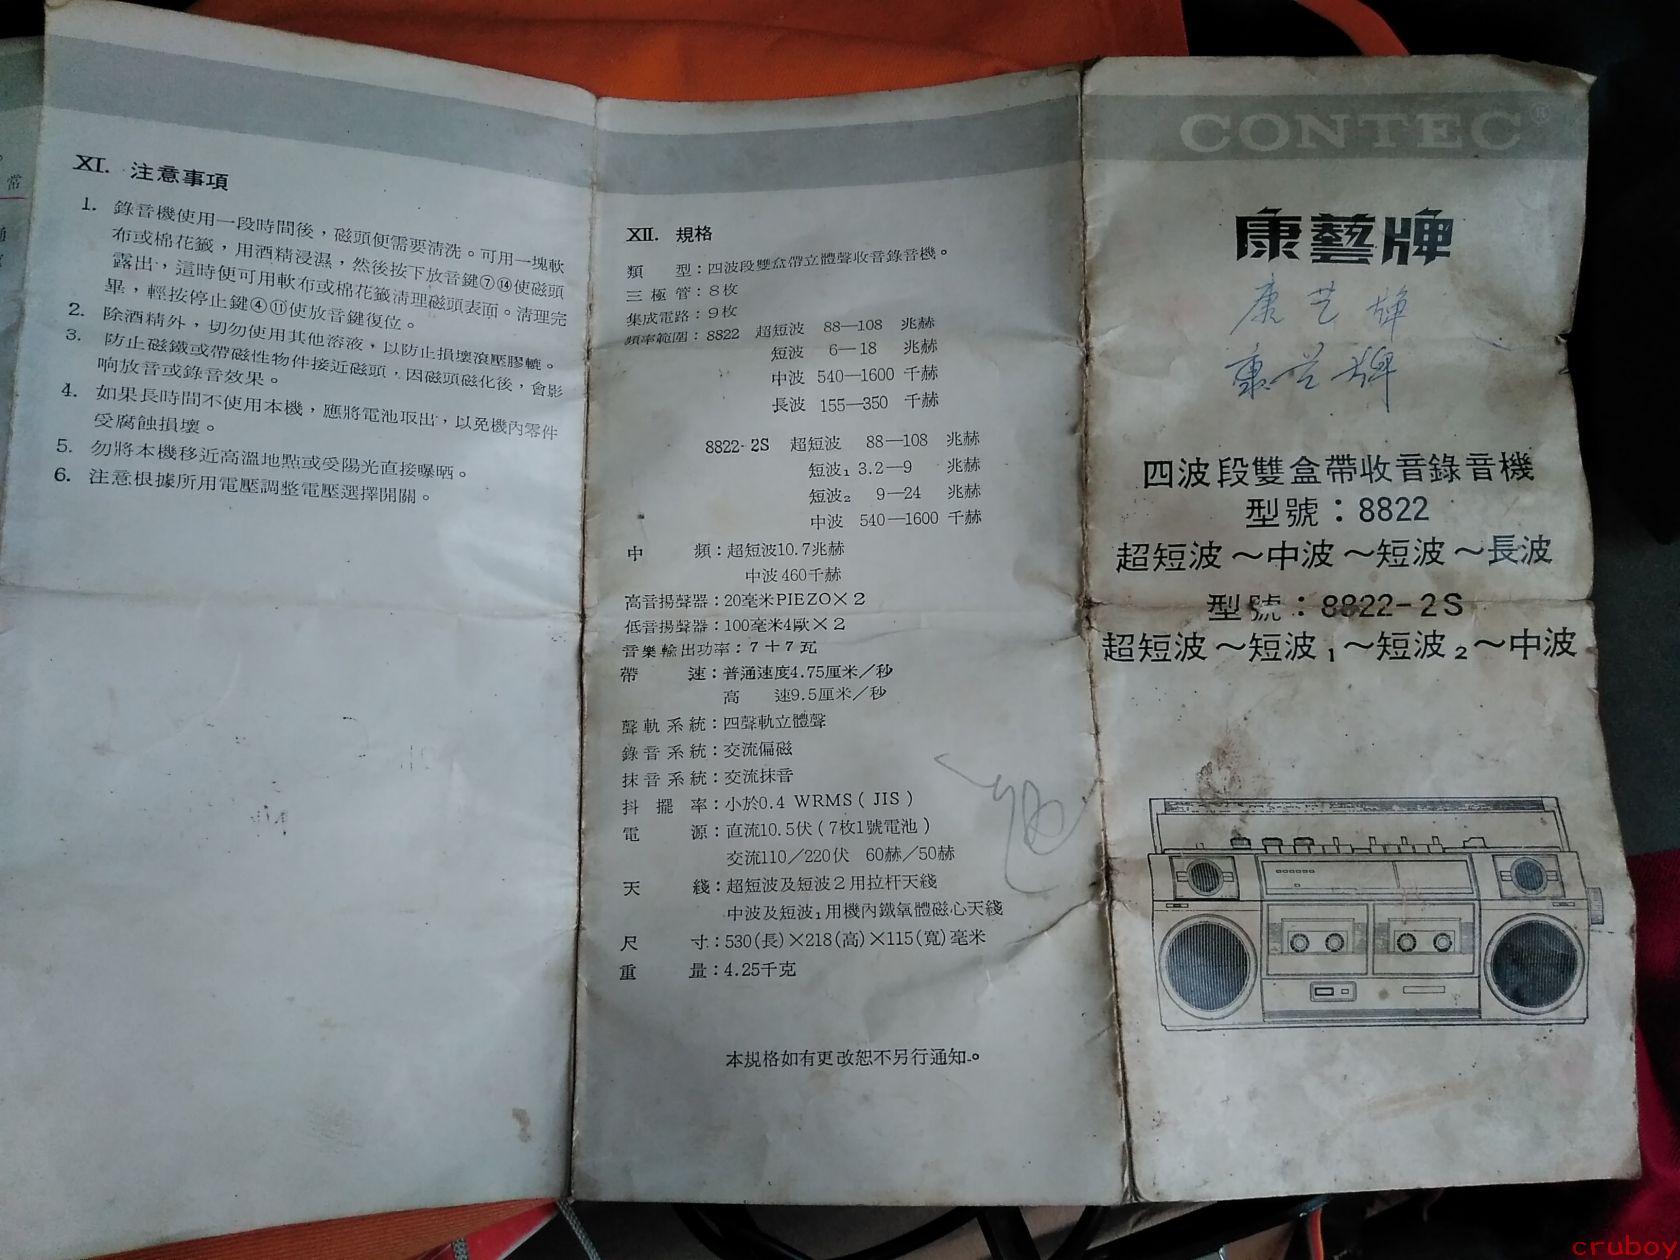 常
XI. 注意事項
1. 錄音機使用一段時間後，磁頭便需要清洗。可用一塊軟
布或棉花籤，用酒精浸濕，然後按下放音鍵⑦⑭使磁頭
露出，這時便可用軟布或棉花籤清理磁頭表面。清理完
畢，輕按停止鍵④⑪使放音鍵復位。
2. 除酒精外，切勿使用其他溶液，以防止損壞滾壓膠轆。
3. 防止磁鐵或帶磁性物件接近磁頭，因磁頭磁化後，會影
响放音或錄音效果。
4. 如果長時間不使用本機，應將電池取出，以免機內零件
受腐蝕損壞。
5. 勿將本機移近高溫地點或受陽光直接曝晒。
6. 注意根據所用電壓調整電壓選擇開關。
XII. 規格
類 型：四波段雙盒帶立體聲收音錄音機。
三極管：8枚
集成電路：9枚
頻率範圍：8822 超短波 88—108 兆赫
短波 6—18 兆赫
中波 540—1600 千赫
長波 155—350 千赫
8822-2S 超短波 88—108 兆赫
短波₁ 3.2—9 兆赫
短波₂ 9—24 兆赫
中波 540—1600 千赫
中 頻：超短波10.7兆赫
中波460千赫
高音揚聲器：20毫米PIEZO×2
低音揚聲器：100毫米4歐×2
音樂輸出功率：7+7瓦
帶 速：普通速度4.75厘米／秒
高 速9.5厘米／秒
聲軌系統：四聲軌立體聲
錄音系統：交流偏磁
抹音系統：交流抹音
抖擺率：小於0.4 WRMS（JIS）
電 源：直流10.5伏（7枚1號電池）
交流110／220伏 60赫／50赫
天 綫：超短波及短波2用拉杆天綫
中波及短波₁用機內鐵氧體磁心天綫
尺 寸：530(長)×218(高)×115(寬)毫米
重 量：4.25千克
本規格如有更改恕不另行通知。
CONTEC®
康藝牌
康艺牌
康艺牌
四波段雙盒帶收音錄音機
型號：8822
超短波～中波～短波～長波
型號：8822-2S
超短波～短波₁～短波₂～中波
cruboy